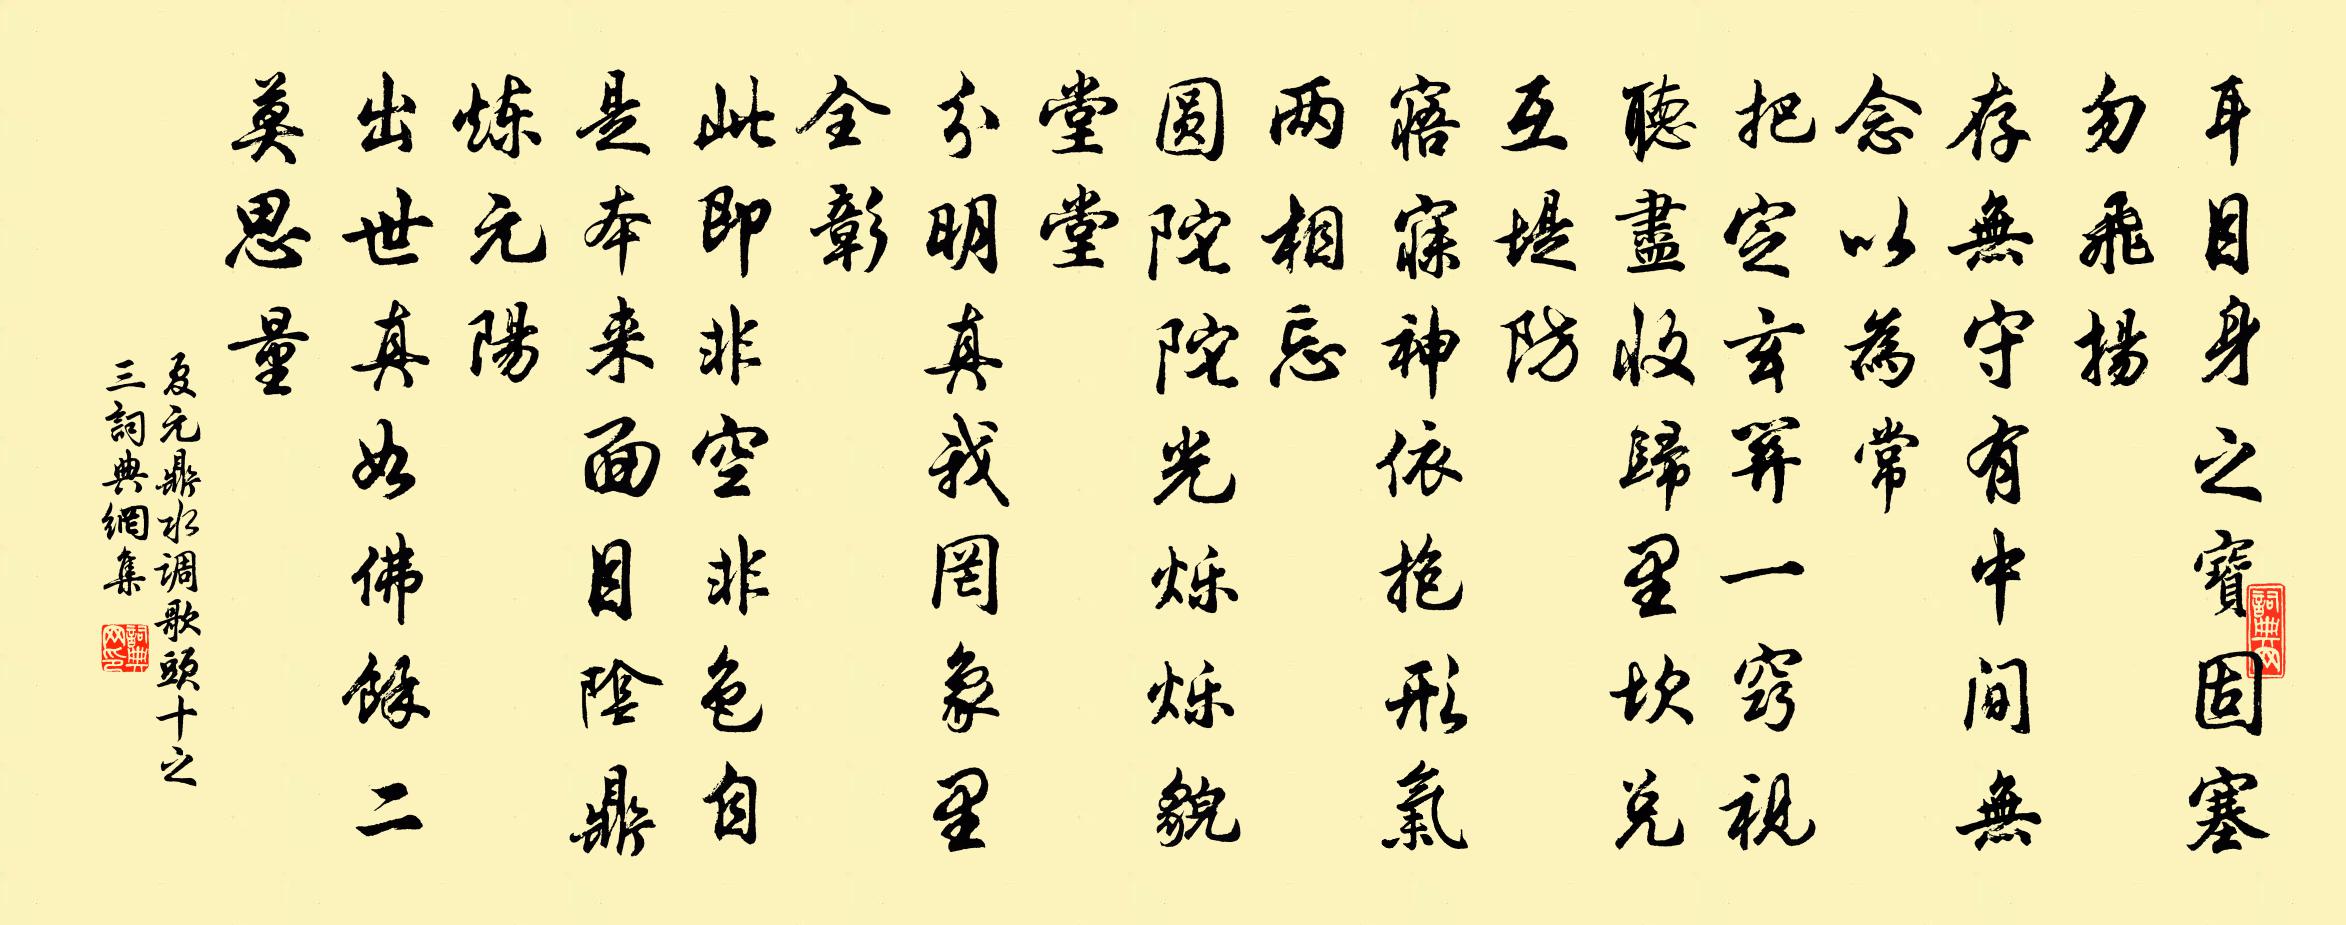 耳目身之寶固塞
勿飛揚
存無守有中间無
念以為常
把定玄關一窍視
聽盡收歸里坎兑
互堤防
寤寐神依抱形氣
两相忘
圆陀陀光烁烁貌
堂堂
分明真我罔象里
全彰
此即非空非色自
是本来面目陰鼎
炼元陽
出世真如佛餘二
莫思量
夏元鼎水调歌頭十之
三詞典網集
詞典网
詞典网印